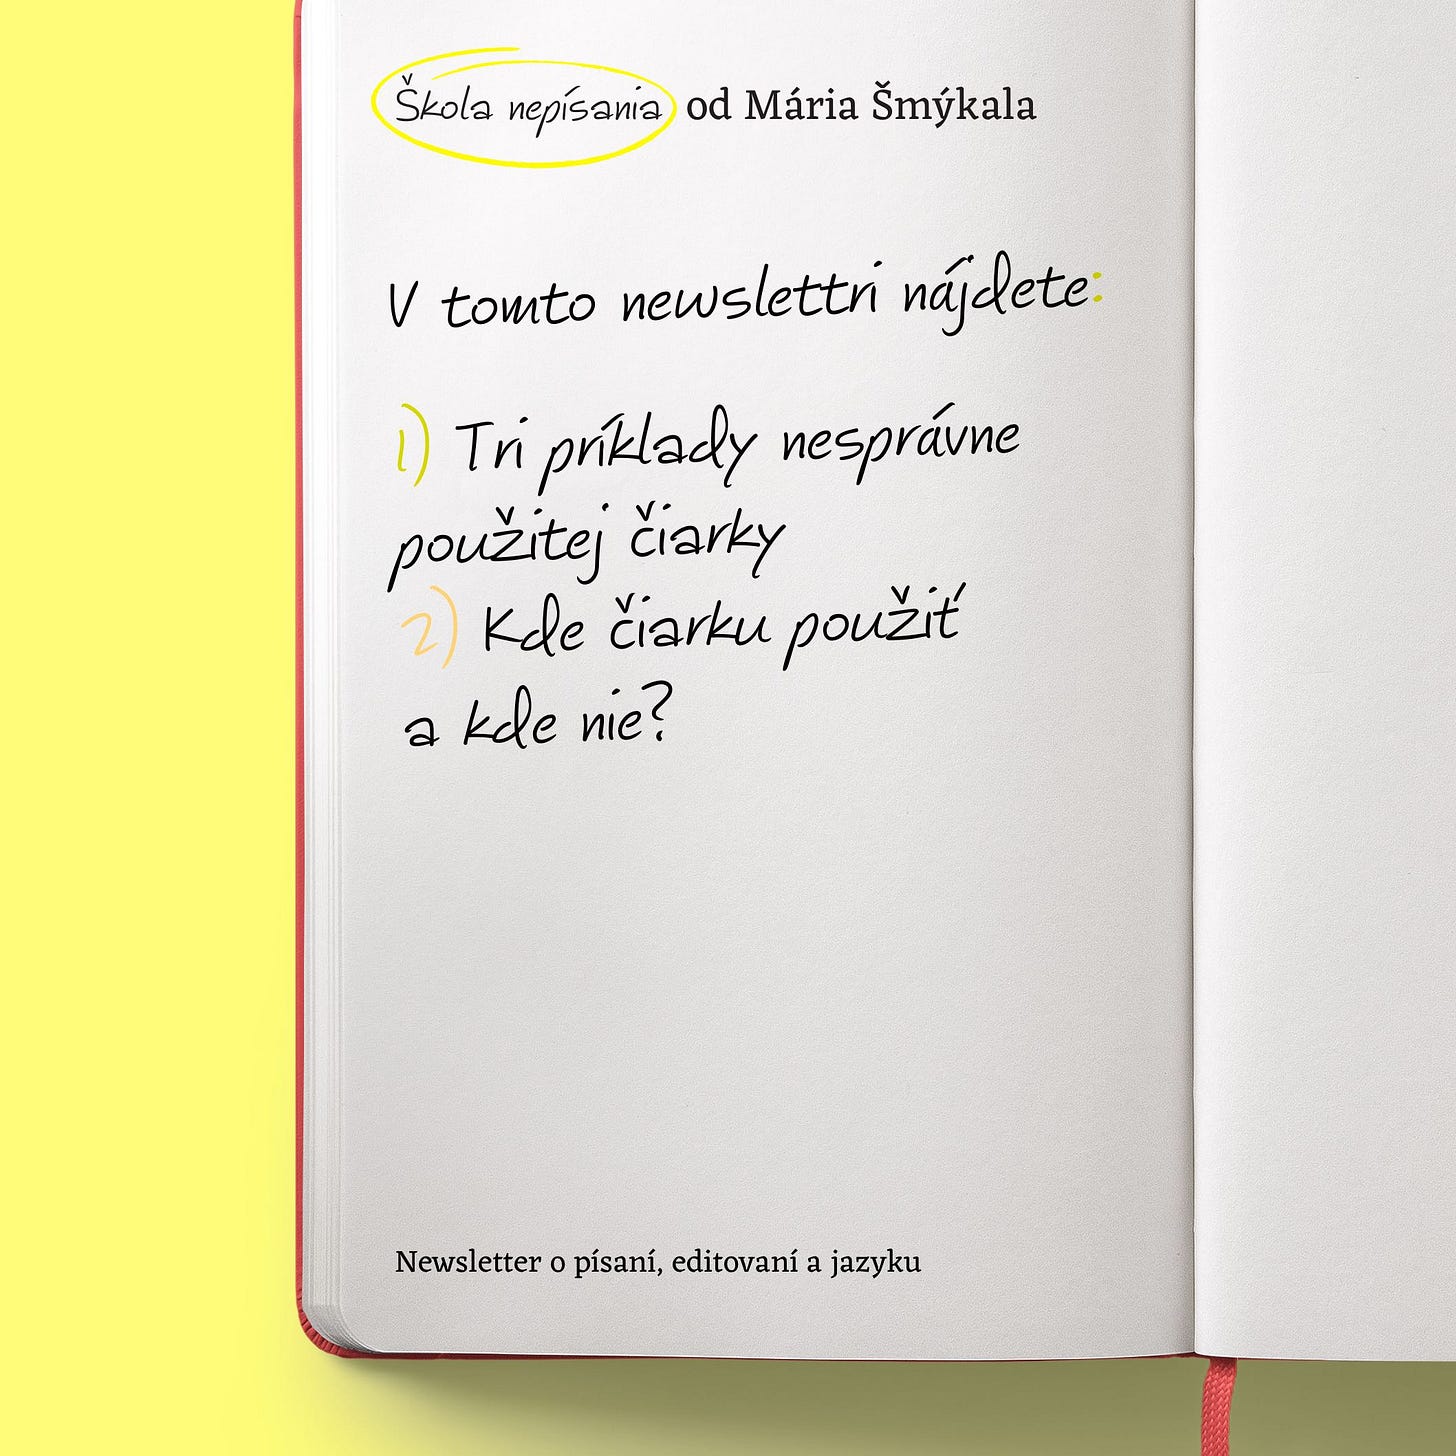 Škola nepísania od Mária Šmýkala
V tomto newslettri nájdete:
1) Tri príklady nesprávne
použitej čiarky
2) Kde čiarku použiť
a kde nie?
Newsletter o písaní, editovaní a jazyku